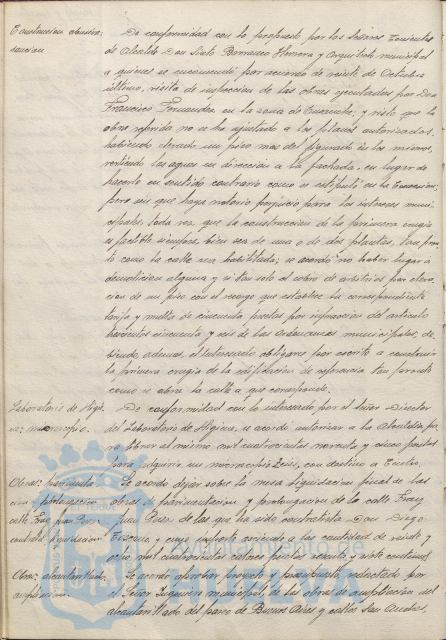 Construccion clandes-
sancion
De conformidad con lo propuesto por los Señores Teniente
de Alcalde Don Sixto Barranco Herrera y Arquitecto municipal
a quienes se encomendó, por acuerdo de veinte de Octubre
último, visita de inspeccion de las obras ejecutadas por Don
Francisco Fernandez en la zona de ; y visto que la
obra referida no se ha ajustado a los planos autorizados,
habiendo elevado un piso mas del figurado en los mismos,
vertiendo las aguas en direccion a la fachada, en lugar de
hacerlo en sentido contrario como se estipuló en la concesion;
pero sin que haya notorio perjuicio para los intereses muni-
cipales, toda vez que la construccion de la primera crugia
es factible siempre, bien sea de una o de dos plantas, tan pron-
to como la calle sea habilitada; se acordó no haber lugar a
demolicion alguna y si tan solo el cobro de arbitrios por eleva-
cion de un piso con el recargo que establece la correspondiente
tarifa y multa de cincuenta pesetas por infraccion del articulo
trescientos cincuenta y seis de las Ordenanzas municipales, de-
biendo, ademas, el interesado obligarse por escrito a construir
la primera crugia de la edificacion de referencia tan pronto
como se abra la calle a que corresponde.
Laboratorio de Higie-
ne: microscopio.
De conformidad con lo interesado por el Señor Director
del Laboratorio de Higiene, se acordó autorizar a la Alcaldia pa-
ra abonar al mismo mil cuatrocientas noventa y cinco pesetas
para adquirir un microscopio Zeiss, con destino a Centro.
Obras: pavimenta-
cion y prolongacion
calle Fray Juan Perez
contrata liquidacion
Se acordó dejar sobre la mesa liquidacion final de las
obras de pavimentacion y prolongacion de la calle Fray
Juan Perez de las que ha sido contratista Don Diego
y cuyo importe asciende a la cantidad de veinte y
mil cuatrocientas catorce pesetas noventa y siete centimos
Obras: alcantarillado.
ampliacion.
Se acordó aprobar proyecto y presupuesto redactado por
el Señor Ingeniero municipal, de las obras de ampliacion del
alcantarillado del paseo de Buenos Aires y calles San Andrés,